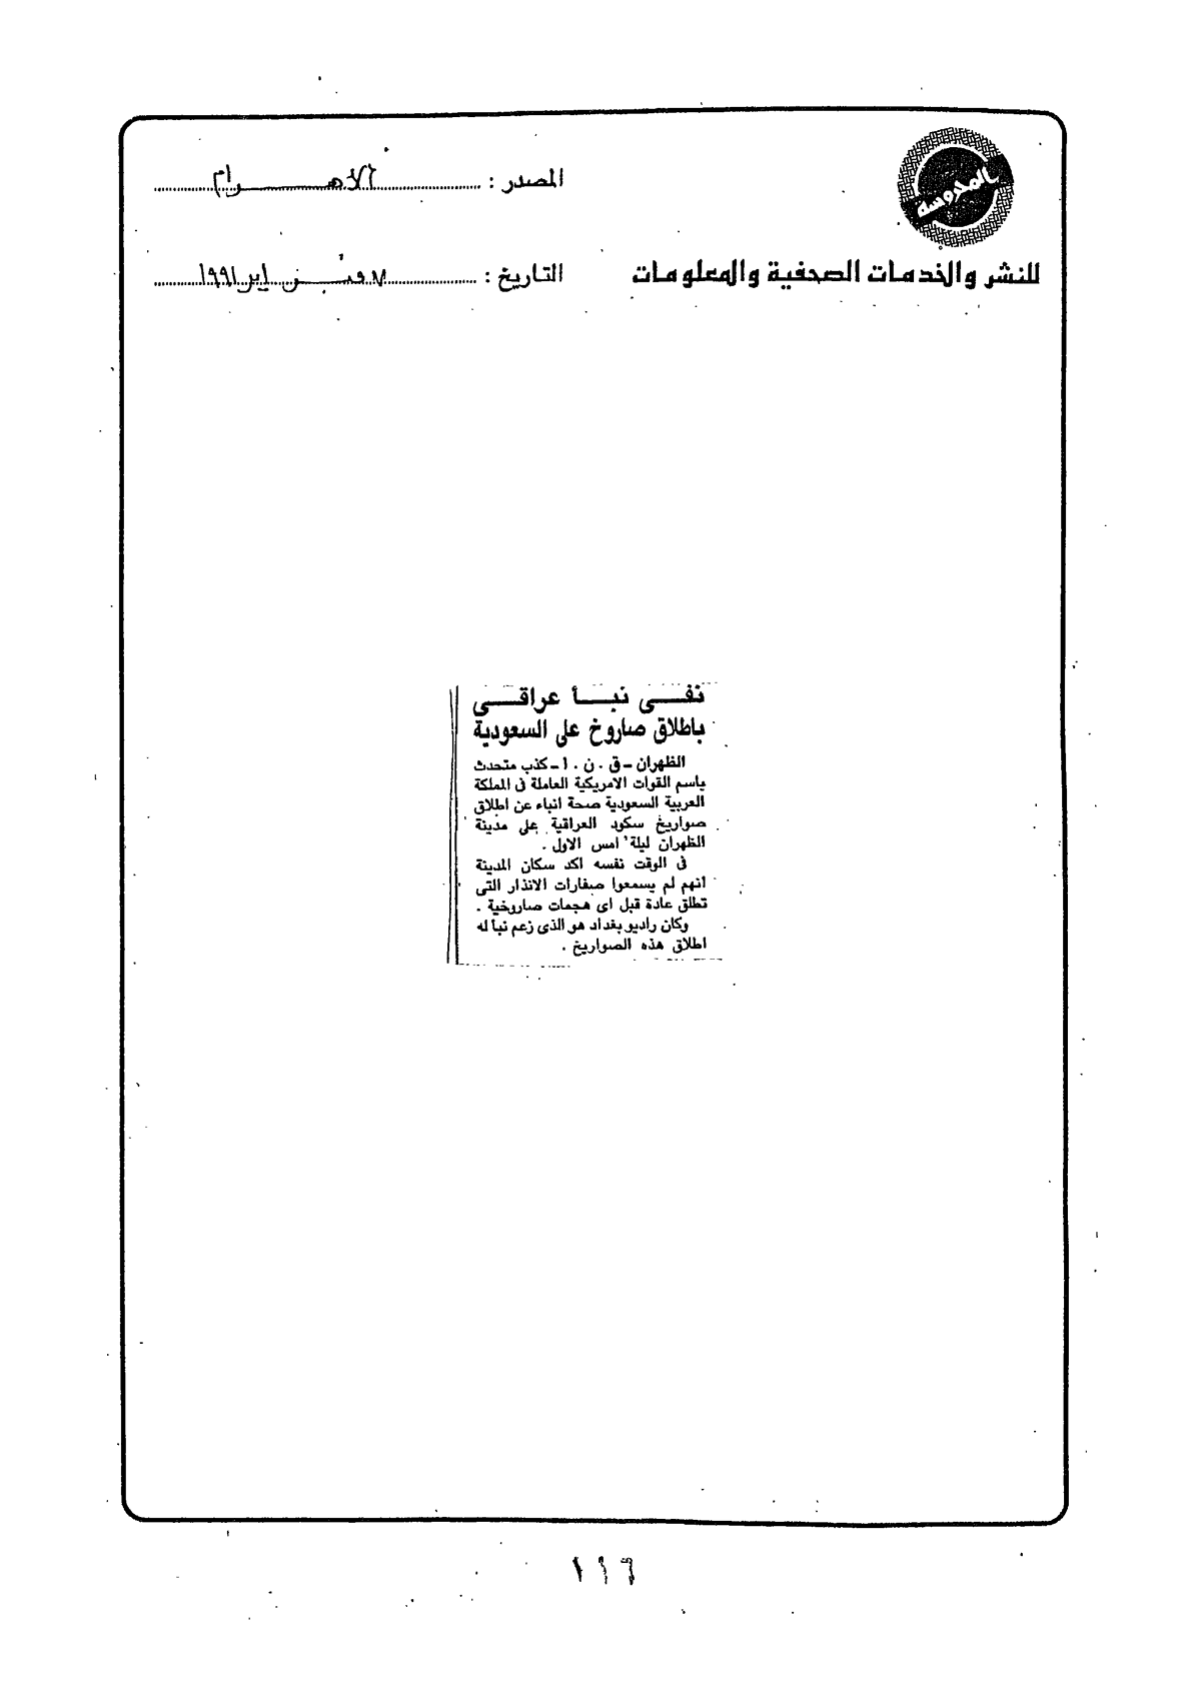 المحروسة
المصدر : الأهـــرام
للنشر والخدمات الصحفية والمعلومات
التاريخ : فبراير ١٩٩١
نفـــى نبـــأ عراقـــي
باطلاق صاروخ على السعودية
الظهران - ق . ن . ا - كذب متحدث
باسم القوات الامريكية العاملة فى المملكة
العربية السعودية صحة انباء عن اطلاق
صواريخ سكود العراقية على مدينة
الظهران ليلة امس الاول .
فى الوقت نفسه اكد سكان المدينة
أنهم لم يسمعوا صفارات الانذار التى
تطلق عادة قبل اى هجمات صاروخية .
وكان راديو بغداد هو الذى زعم نبا له
اطلاق هذه الصواريخ .
١١٦